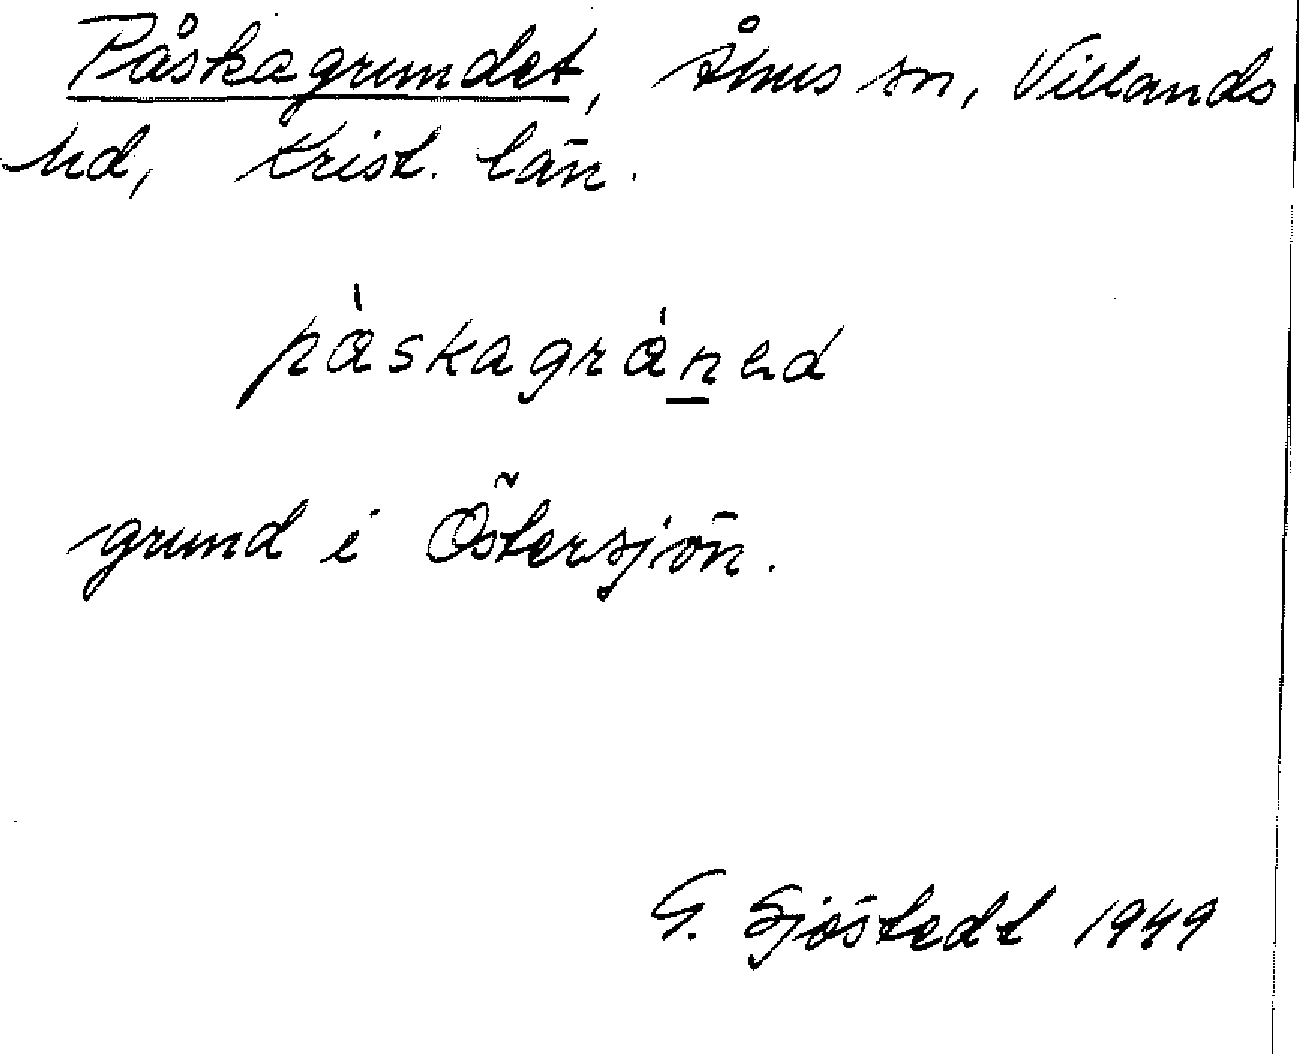 Påskagrundet, Åhus sn, Villands
hd, Krist. län.
påskagrånad
grund i Östersjön.
G. Sjöstedt 1949